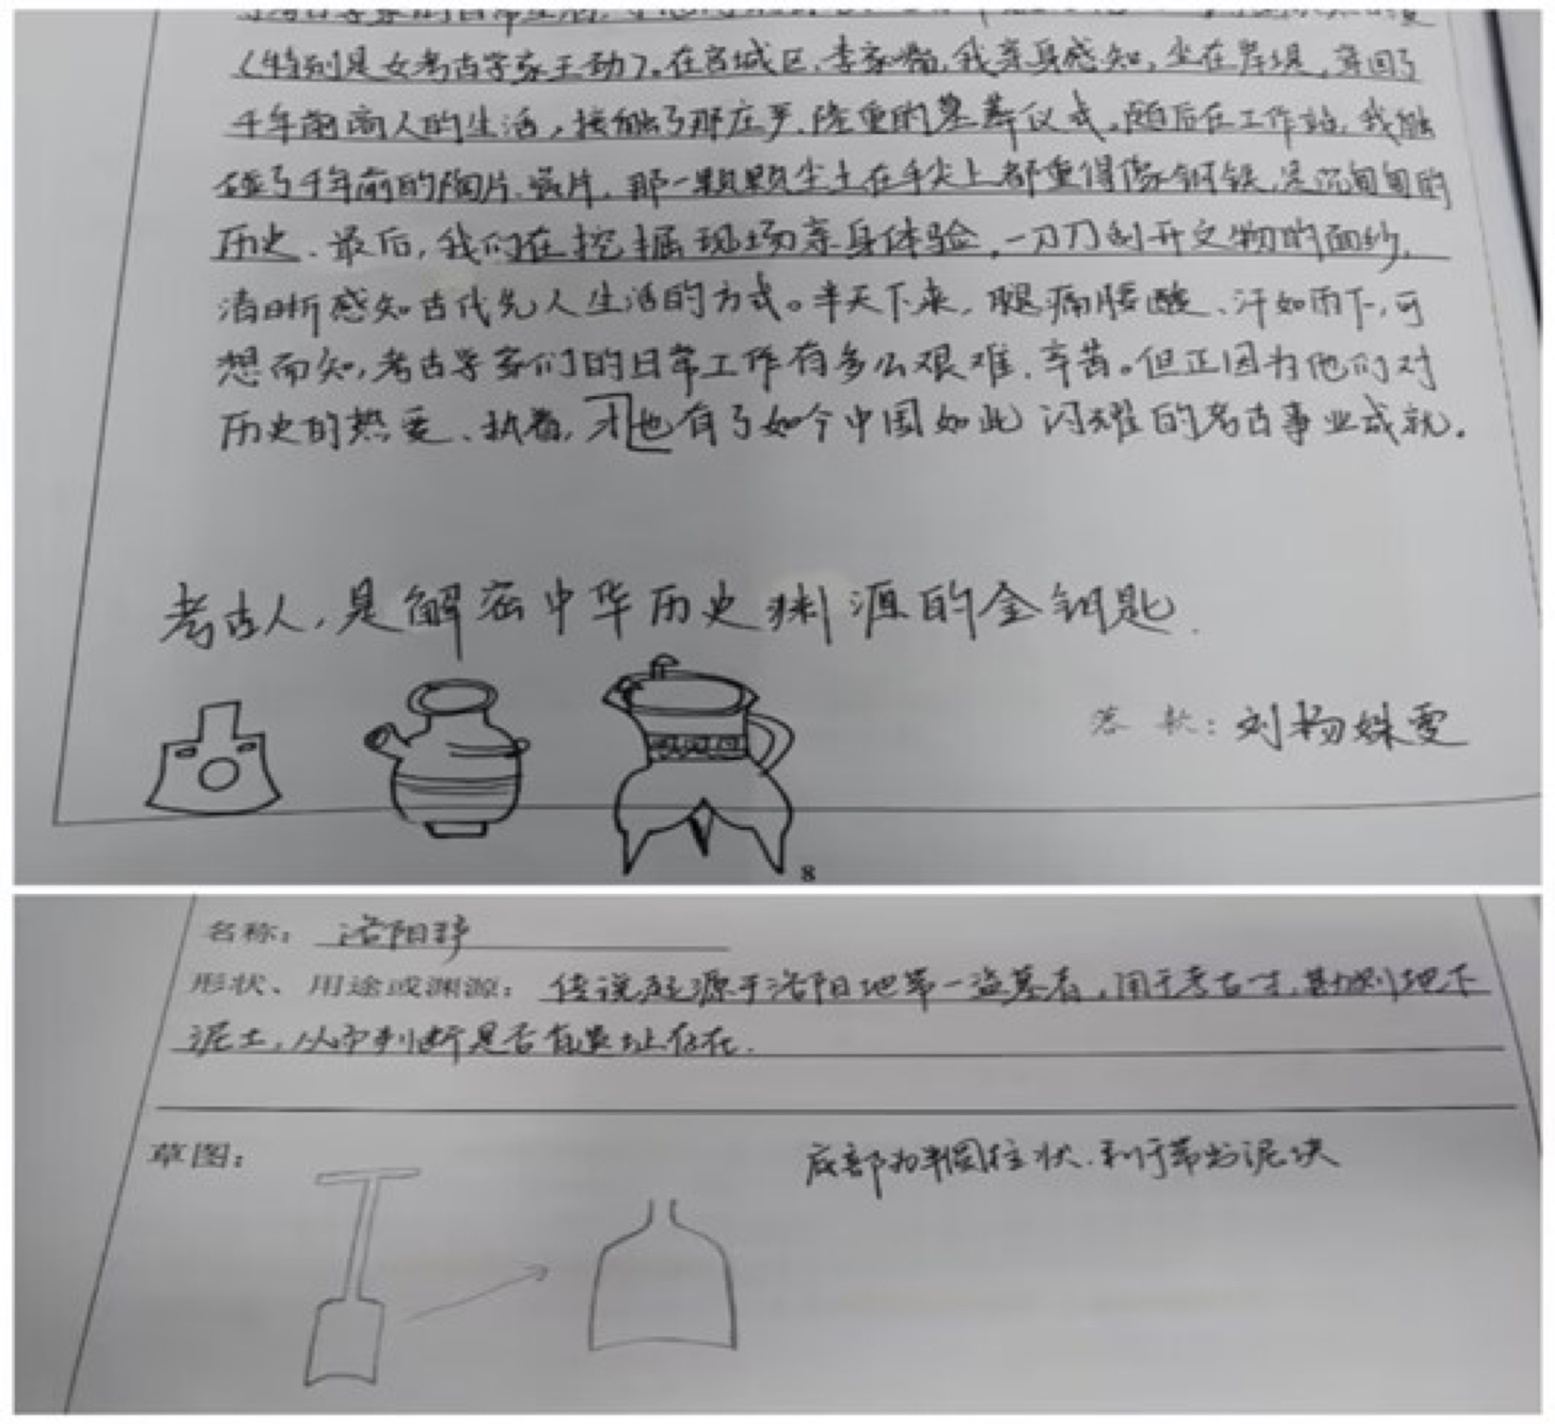 （特别是女考古学家王劲）。在宫城区、李家嘴，我亲身感知，坐在岸堤，穿回了
千年前商人的生活，接触了那庄严、隆重的墓葬仪式。随后在工作站，我触
碰了千年前的陶片、瓷片，那一颗颗尘土在手尖上都重得像钢铁，是沉甸甸的
历史。最后，我们在挖掘现场亲身体验，一刀刀刮开文物的面纱，
清晰感知古代先人生活的方式。半天下来，腿痛腰酸、汗如雨下，可
想而知，考古学家们的日常工作有多么艰难、辛苦。但正因为他们对
历史的热爱、执着，才也有了如今中国如此闪耀的考古事业成就。
考古人，是解密中华历史渊源的金钥匙.
落 款：刘杨姝雯
8
名称：洛阳铲
形状、用途或渊源：传说起源于洛阳地第一盗墓者，用于考古时，勘测地下
泥土，从而判断是否有遗址存在.
草图：
底部为半圆柱状.利于带出泥块